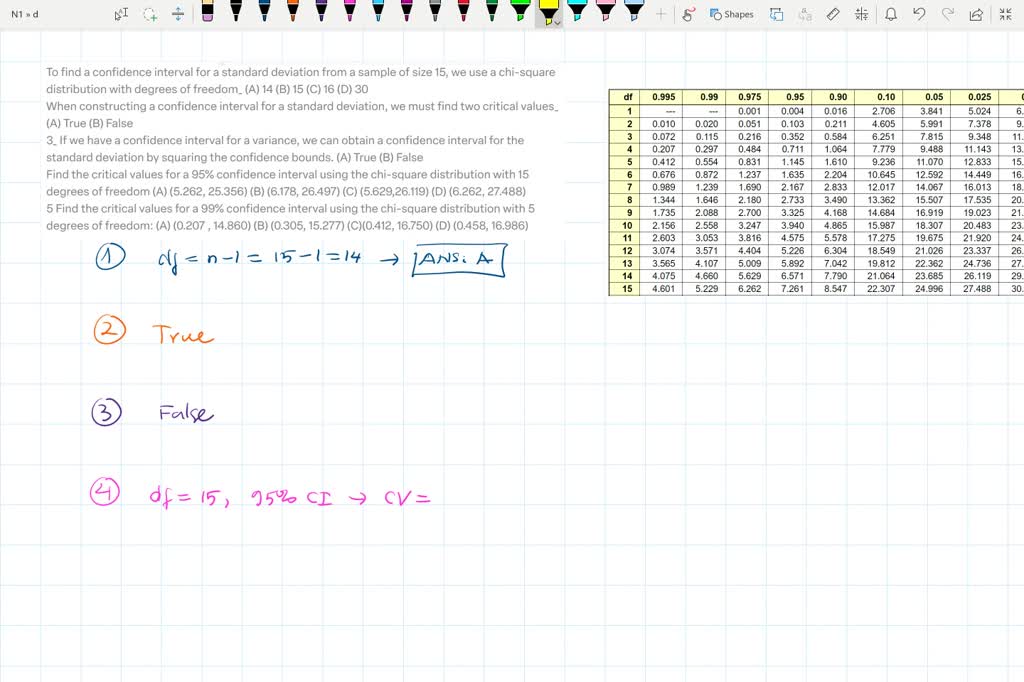 N1 » d
Shapes
To find a confidence interval for a standard deviation from a sample of size 15, we use a chi-square
distribution with degrees of freedom_ (A) 14 (B) 15 (C) 16 (D) 30
When constructing a confidence interval for a standard deviation, we must find two critical values_
(A) True (B) False
3_ If we have a confidence interval for a variance, we can obtain a confidence interval for the
standard deviation by squaring the confidence bounds. (A) True (B) False
Find the critical values for a 95% confidence interval using the chi-square distribution with 15
degrees of freedom (A) (5.262, 25.356) (B) (6.178, 26.497) (C) (5.629,26.119) (D) (6.262, 27.488)
5 Find the critical values for a 99% confidence interval using the chi-square distribution with 5
degrees of freedom: (A) (0.207 , 14.860) (B) (0.305, 15.277) (C)(0.412, 16.750) (D) (0.458, 16.986)
1 df = n-1 = 15-1 = 14 → ANS: A
2 True
3 False
4 df = 15, 95% CI → CV =
df 0.995 0.99 0.975 0.95 0.90 0.10 0.05 0.025 0
1 --- --- 0.001 0.004 0.016 2.706 3.841 5.024 6.
2 0.010 0.020 0.051 0.103 0.211 4.605 5.991 7.378 9.
3 0.072 0.115 0.216 0.352 0.584 6.251 7.815 9.348 11.
4 0.207 0.297 0.484 0.711 1.064 7.779 9.488 11.143 13.
5 0.412 0.554 0.831 1.145 1.610 9.236 11.070 12.833 15.
6 0.676 0.872 1.237 1.635 2.204 10.645 12.592 14.449 16.
7 0.989 1.239 1.690 2.167 2.833 12.017 14.067 16.013 18.
8 1.344 1.646 2.180 2.733 3.490 13.362 15.507 17.535 20.
9 1.735 2.088 2.700 3.325 4.168 14.684 16.919 19.023 21.
10 2.156 2.558 3.247 3.940 4.865 15.987 18.307 20.483 23.
11 2.603 3.053 3.816 4.575 5.578 17.275 19.675 21.920 24.
12 3.074 3.571 4.404 5.226 6.304 18.549 21.026 23.337 26.
13 3.565 4.107 5.009 5.892 7.042 19.812 22.362 24.736 27.
14 4.075 4.660 5.629 6.571 7.790 21.064 23.685 26.119 29.
15 4.601 5.229 6.262 7.261 8.547 22.307 24.996 27.488 30.